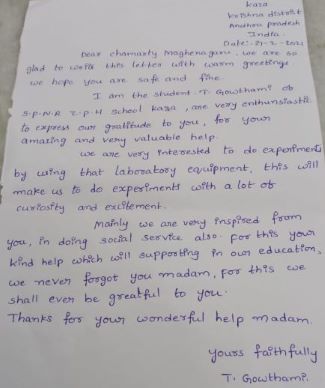 kaza
krishna district
Andhra pradesh
India.
Date:-21-2-2021
Dear chamarty Maghenagaru, we are so
glad to write this letter with warm greetings.
we hope you are safe and fine.
I am the student. T. Gowthami of
S.P.N.R Z.P.H School kaza, are very enthunsiastic
to express our gratitude to you, for your
amazing and very valuable help.
we are very interested to do experiments
by using that laboratory equipment, this will
make us to do experiments with a lot of
curiosity and excitement.
Mainly we are very inspired from
you, in doing social service also. for this your
kind help which will supporting in our education,
we never forgot you madam, for this we
shall ever be greatful to you.
Thanks for your wonderful help madam.
yours faithfully
T. Gowthami.